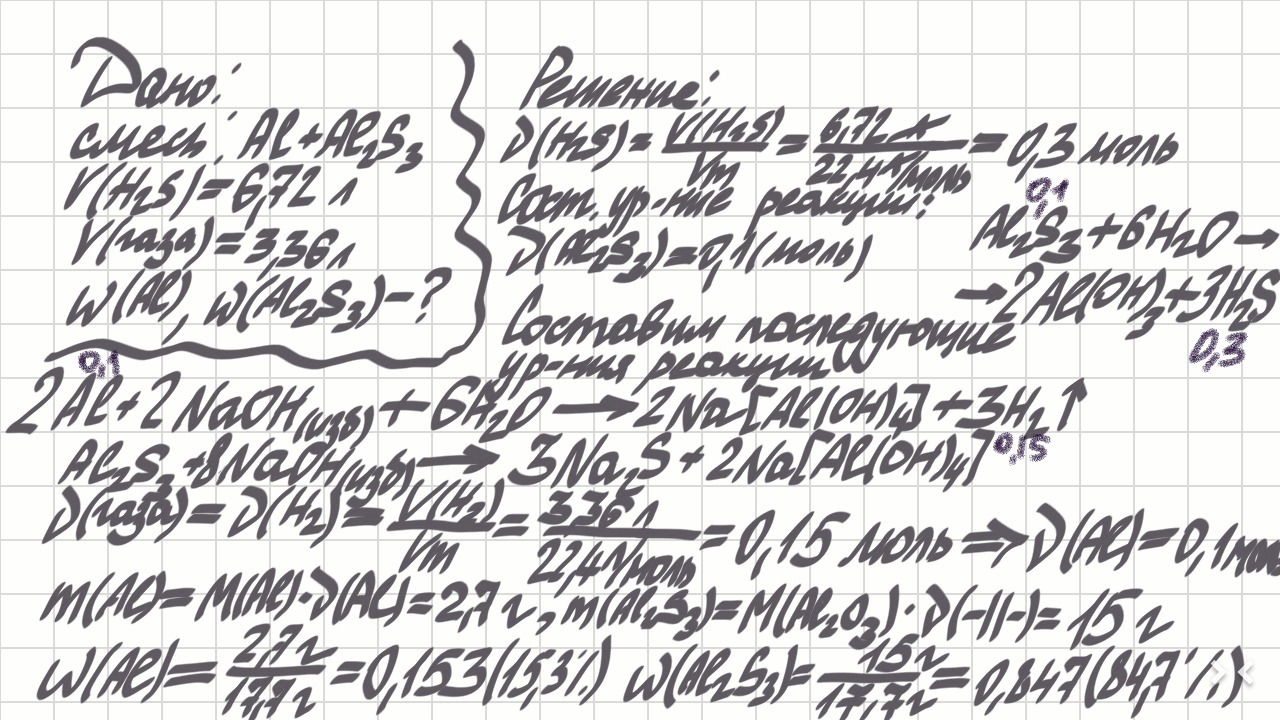 Дано:
смесь: Al+Al₂S₃
V(H₂S)=6,72 л
V(газа)=3,36л
w(Al), w(Al₂S₃)-?
Решение:
ν(H₂S)= V(H₂S)/Vm = 6,72 л/22,4 л/моль = 0,3 моль
Сост. ур-ние реакции:
0,1
Al₂S₃+6H₂O→
ν(Al₂S₃)=0,1(моль)
→2Al(OH)₃+3H₂S
0,3
Составим последующие
ур-ния реакций
0,1
2Al+2NaOH(изб)+6H₂O→2Na[Al(OH)₄]+3H₂↑
0,15
Al₂S₃+8NaOH(изб)→3Na₂S+2Na[Al(OH)₄]
ν(газа)=ν(H₂)= V(H₂)/Vm = 3,36 л/22,4 л/моль = 0,15 моль ⇒ ν(Al)=0,1моль
m(Al)=M(Al)·ν(Al)=2,7 г, m(Al₂S₃)=M(Al₂O₃)·ν(-||-)=15 г
w(Al)= 2,7 г/17,7 г =0,153(15,3%) w(Al₂S₃)= 15 г/17,7 г = 0,847(84,7%)